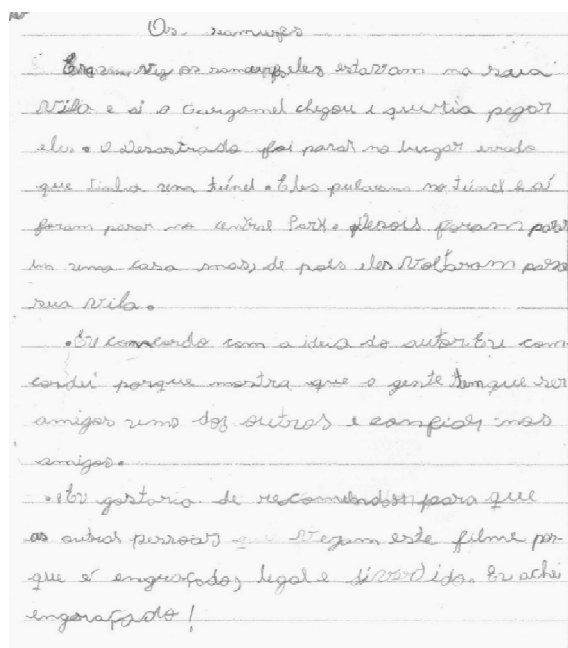 Os samurfes
Era uma vez os samurfes eles estavam na sua
vila e aí o Gargamel chegou i queria pegar
eles. O Desastrado foi parar no lugar errado
que tinha um túnel. Eles pularam no túnel e aí
foram parar no central Park. Depois foram para
in uma casa mas, de pois eles Voltaram para
sua vila.
.Eu concordo com a ideia do autor Eu com
cordei porque mostra que a gente tem que ser
amigos uns dos outros e confiar nos
amigos.
.Eu gostaria de recomendar para que
as outras pessoas vejam este filme por-
que é engraçado, legal e divertido. Eu achei
engraçado!